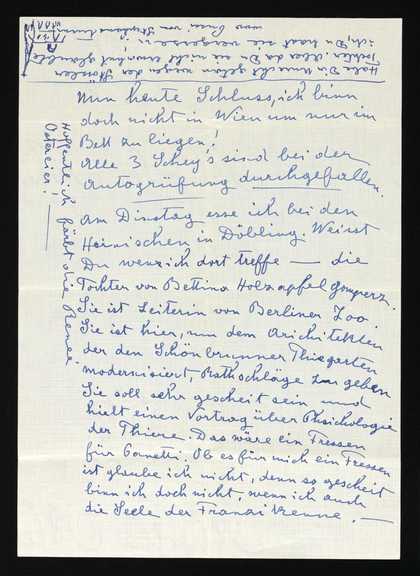 Nun heute Schluss, ich binn
doch nicht in Wien um nur im
Bett zu liegen!
Alle 3 Schey's sind bei der
Autogrüfung durchgefallen.
Am Dinstag esse ich bei den
Heinischen in Döbling. Weisst
Du wenn ich dort treffe — die
Tochter von Bettina Holzapfel Gomperz.
Sie ist Leiterin von Berliner Zoo.
Sie ist hier, um dem Arichitekten
der den Schönbrunner Thiegarten
modernisiert, Rathschläge zu geben
Sie soll sehr gescheit sein und
hielt einen Vortrag über Phsichologie
der Thiere. Das wäre ein Fressen
für Connelli. Ob es für mich ein Fressen
ist glaube ich nicht, denn so gescheit
binn ich doch nicht, wenn ich auch
die Seele der Franzi kenne. —
Hoffentlich färbt die Renee
Ostereier!
Habe Dir Unrecht gethan wegen der
Tochter. Aber da Du sie nicht erwähnt
ich, Du hast sie vergessen;